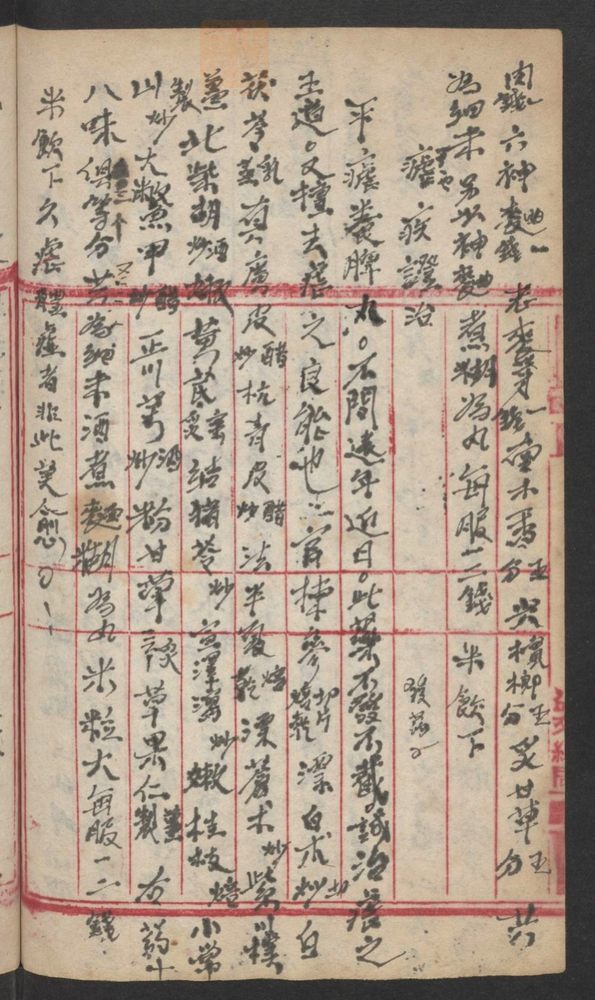 肉錢六神麯錢一老麥芽錢一南木香分五尖檳榔分五炙甘草分五共
為細末另以神麯煮糊為丸每服一二錢米飲下
瘧疾證治
平瘧養脾丸。不問遠年近日。此藥不發不截。誠治瘧之
王道。又擅去瘧之良能也。官揀參切片焙乾漂白朮土炒白
茯苓乳蒸真廣皮醋炒杭青皮醋炒法半夏焙乾漂蒼朮炒紫川樸
薑製北柴胡酒炒嫩黃芪蜜炙結豬苓炒宣澤瀉炒嫩桂枝焙小常
山炒大鱉甲醋炒正川芎酒炒粉甘草三錢草果仁薑製右藥十
八味俱等分共為細末酒煮麯糊為丸米粒大每服一二錢
米飲下久瘧體虛者非此莫愈